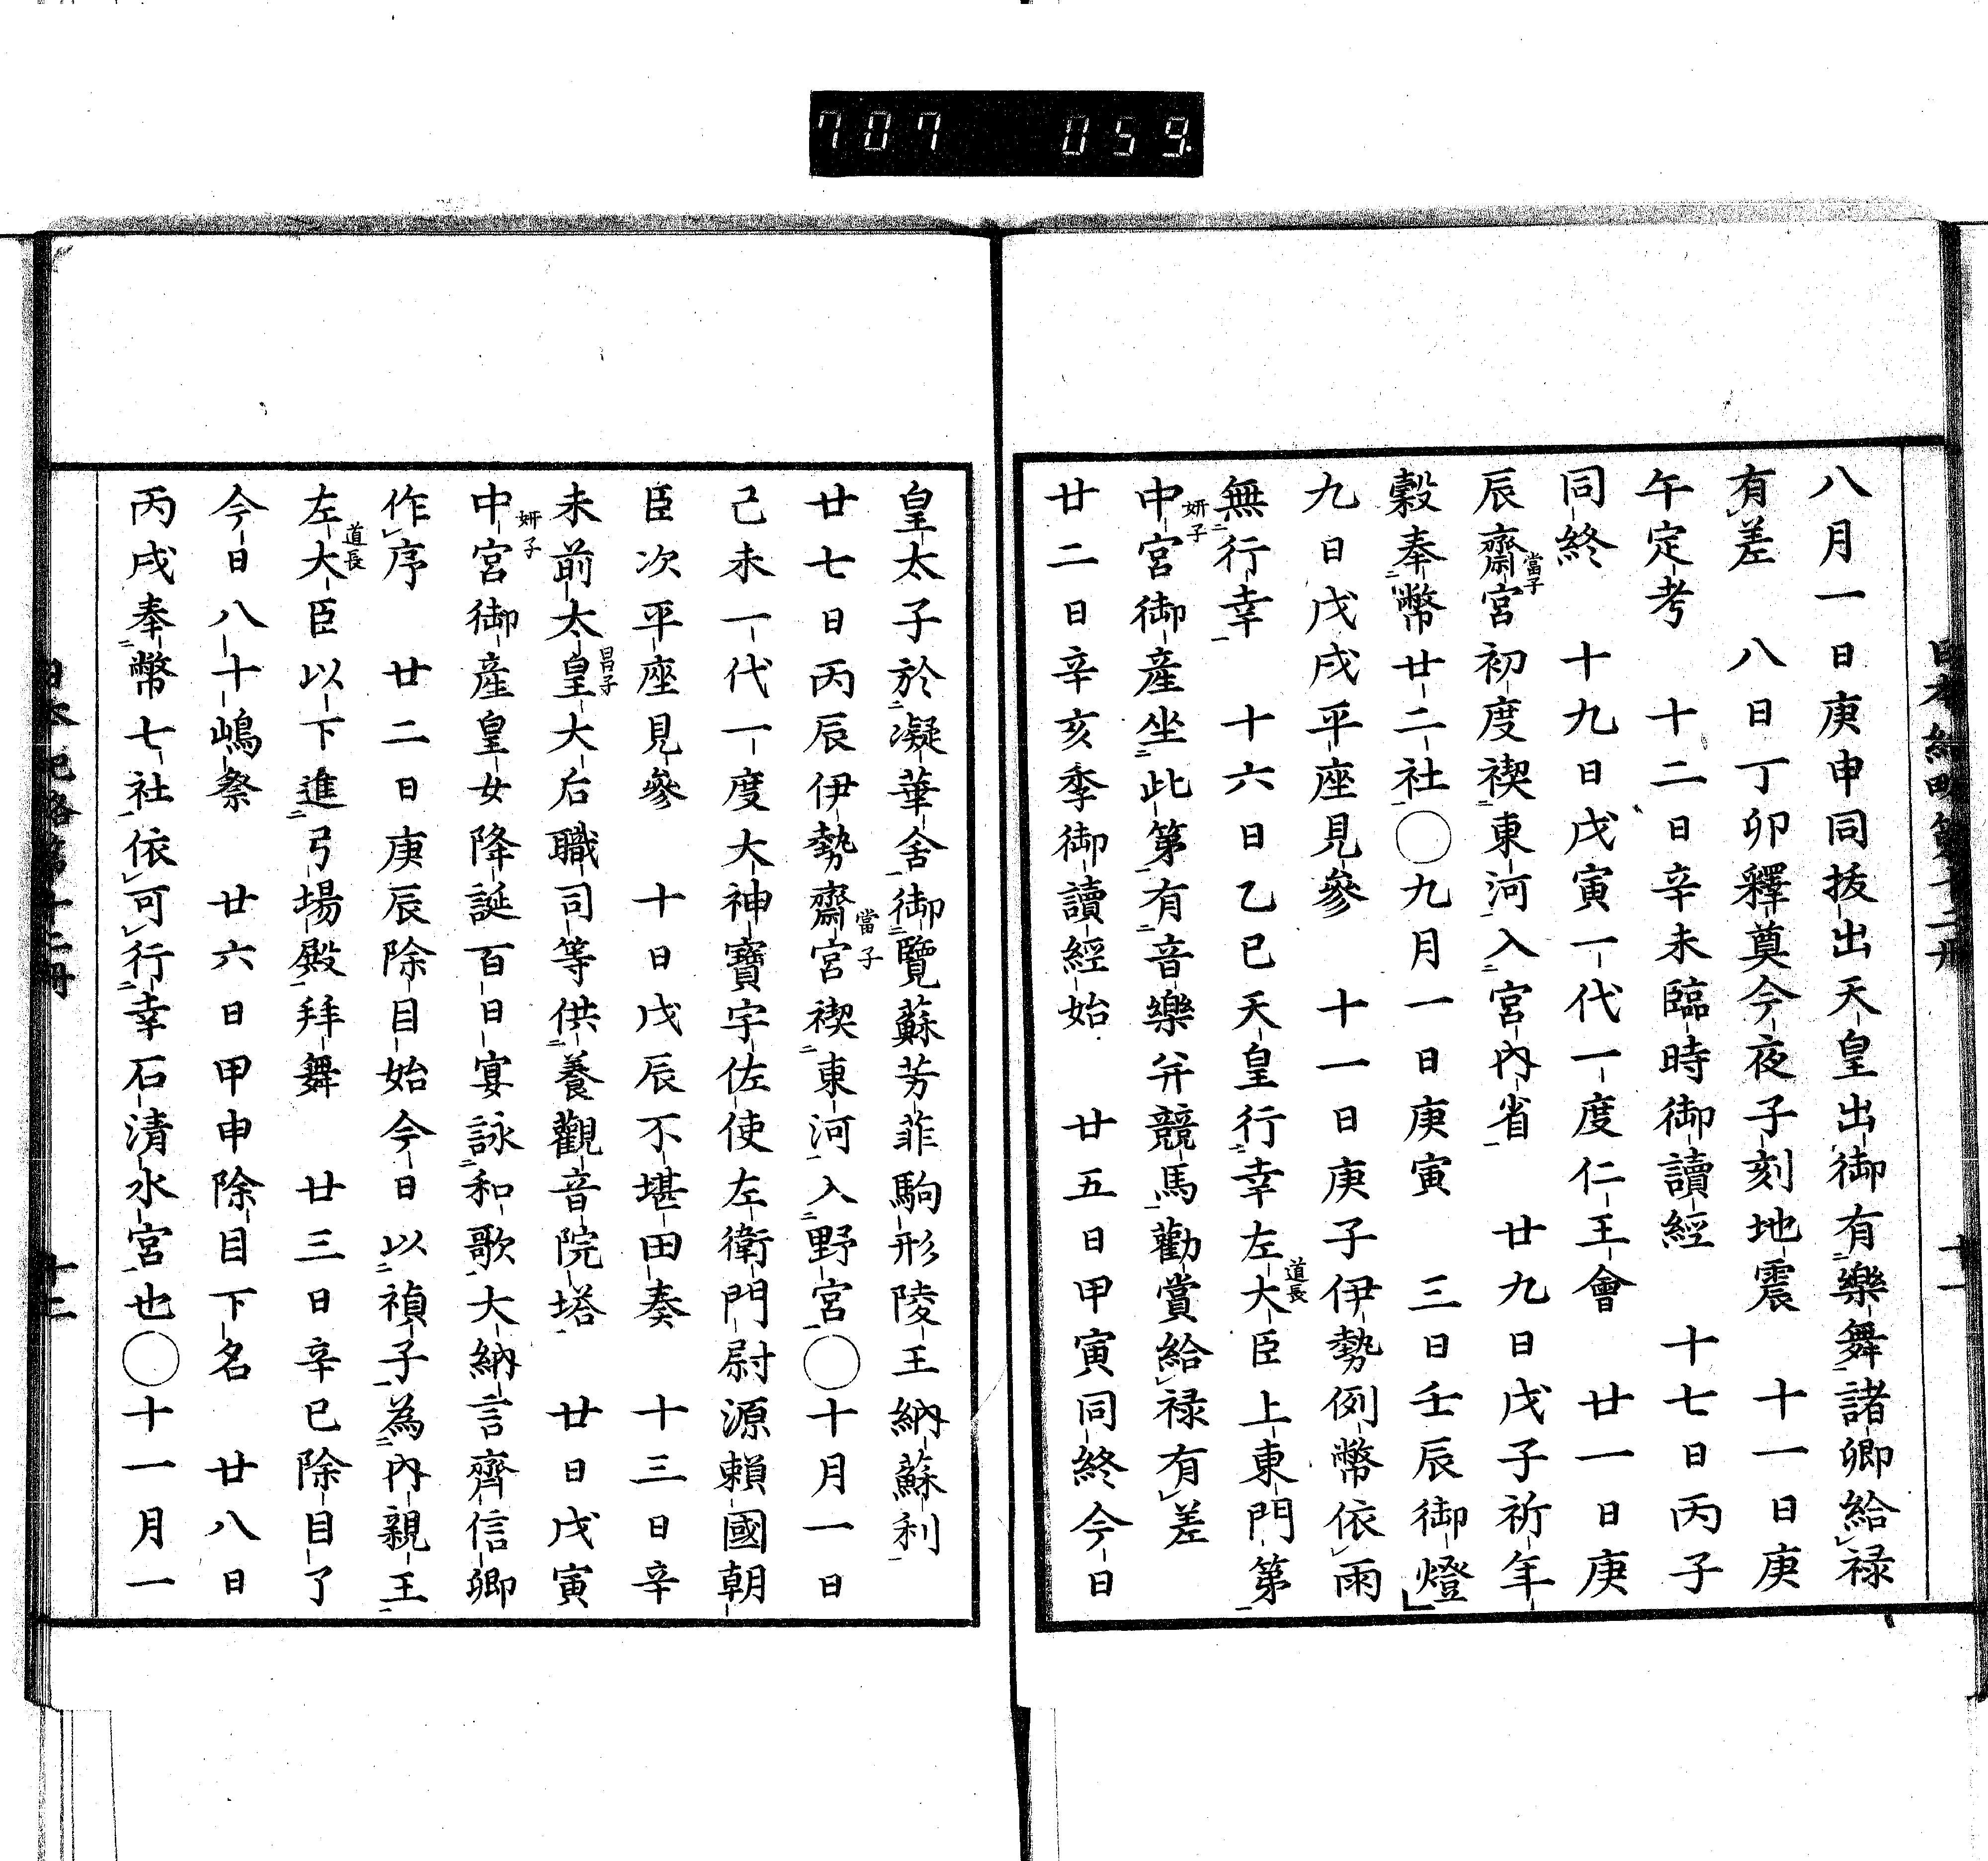 707 059
日本紀略第十二冊 十一
八月一日庚申同抜出天皇出御有樂舞諸卿給禄
有差　八日丁卯釋奠今夜子刻地震　十一日庚
午定考　十二日辛未臨時御讀經　十七日丙子
同終　十九日戊寅一代一度仁王會　廿一日庚
辰齋宮當子初度禊東河入宮內省　廿九日戊子祈年
穀奉幣廿二社〇九月一日庚寅　三日壬辰御燈
九日戊戌平座見參　十一日庚子伊勢例幣依雨
無行幸　十六日乙巳天皇行幸左大臣道長上東門第
中宮妍子御産坐此第有音樂并競馬勸賞給禄有差
廿二日辛亥季御讀經始　廿五日甲寅同終今日
皇太子於凝華舍御覽蘇芳菲駒形陵王納蘇利
廿七日丙辰伊勢齋宮當子禊東河入野宮〇十月一日
己未一代一度大神寶宇佐使左衛門尉源頼國朝
臣次平座見參　十日戊辰不堪田奏　十三日辛
未前太皇大后昌子職司等供養觀音院塔　廿日戊寅
中宮妍子御産皇女降誕百日宴詠和歌大納言齊信卿
作序　廿二日庚辰除目始今日以禎子為內親王
左大臣道長以下進弓場殿拜舞　廿三日辛巳除目了
今日八十嶋祭　廿六日甲申除目下名　廿八日
丙戌奉幣七社依可行幸石清水宮也〇十一月一
日本紀略第十二冊 十二